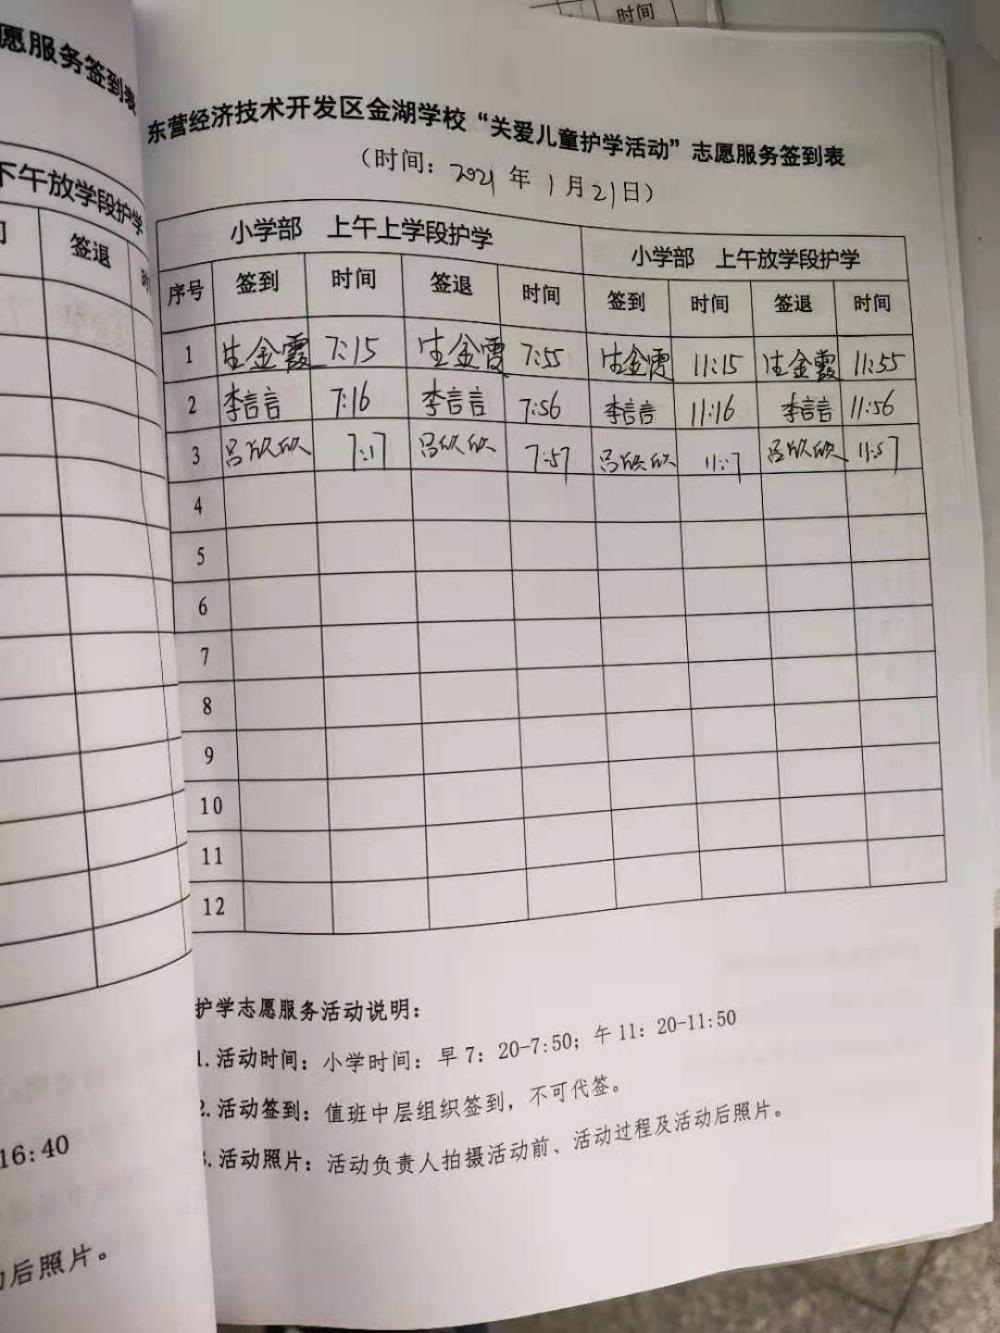 时间
愿服务签到表
下午放学段护学
签退
16:40
后照片。
东营经济技术开发区金湖学校“关爱儿童护学活动”志愿服务签到表
(时间：2021年1月21日)
小学部 上午上学段护学 小学部 上午放学段护学
序号 签到 时间 签退 时间 签到 时间 签退 时间
1 生金霞 7:15 生金霞 7:55 生金霞 11:15 生金霞 11:55
2 李言言 7:16 李言言 7:56 李言言 11:16 李言言 11:56
3 吕欣欣 7:17 吕欣欣 7:57 吕欣欣 11:17 吕欣欣 11:57
4
5
6
7
8
9
10
11
12
护学志愿服务活动说明：
1.活动时间：小学时间：早7：20-7:50；午11：20-11:50
2.活动签到：值班中层组织签到，不可代签。
3.活动照片：活动负责人拍摄活动前、活动过程及活动后照片。